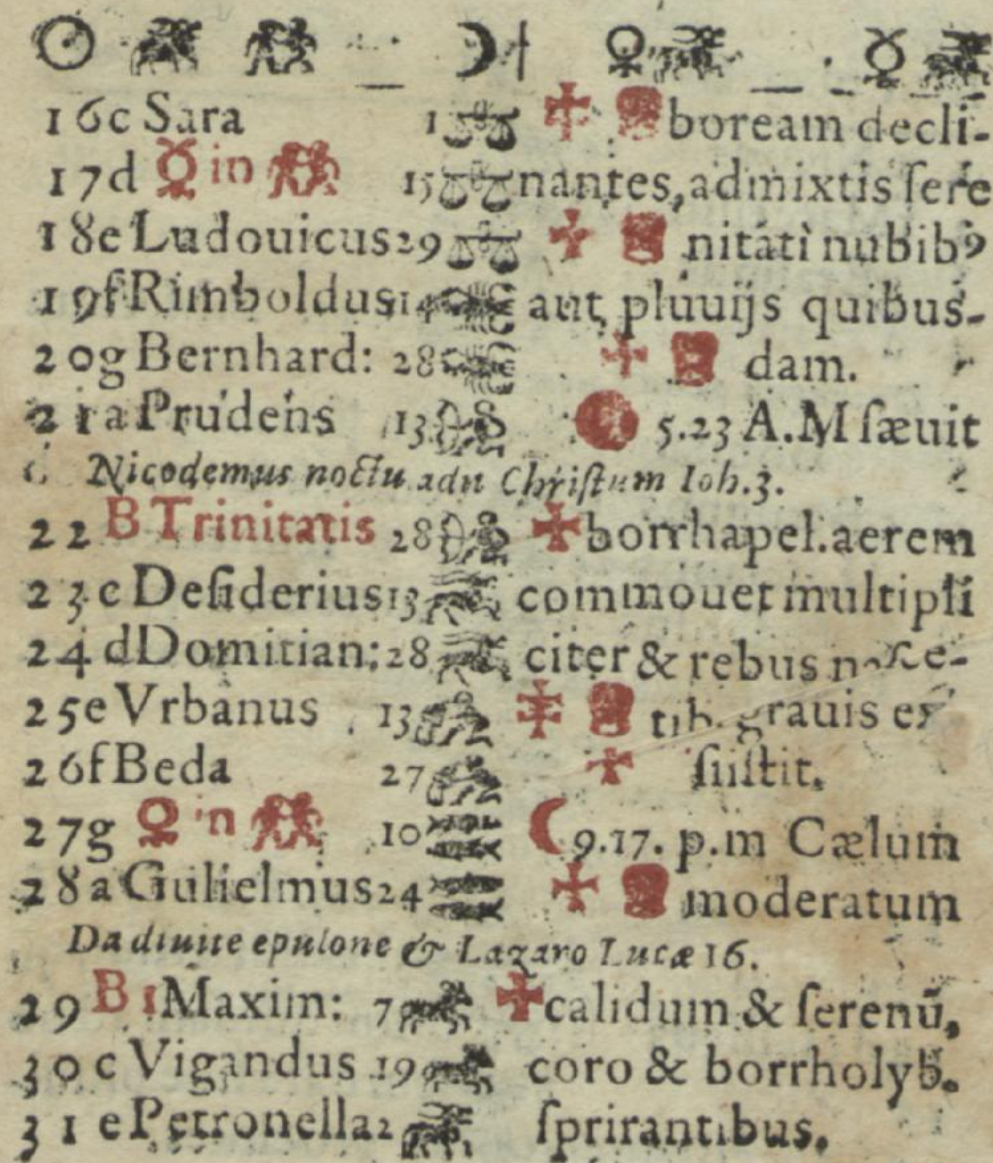 ☉ ☽ ♀ ☿
16c Sara 1 boream decli-
17d ☿ in 15 nantes, admixtis ſere
18e Ludouicus 29 nitati nubibꝰ
19f Rimboldus 14 aut pluuijs quibus-
20g Bernhard: 28 dam.
21a Prudens 13 5.23 A.M ſæuit
Nicodemus noctu adit Chriſtum Ioh.3.
22 B Trinitatis 28 borrhapel. aerem
23 c Deſiderius 13 commouet multipli
24 d Domitian: 28 citer & rebus naſcē-
25e Vrbanus 13 tib. grauis ex
26f Beda 27 ſiſtit.
27g ♀ in 10 ☾ 9.17. p.m Cælum
28a Gulielmus 24 moderatum
Da diuite epulone & Lazaro Lucæ 16.
29 B 1 Maxim: 7 calidum & ſerenū,
30 c Vigandus 19 coro & borrholyb.
31 e Petronella 2 ſprirantibus.